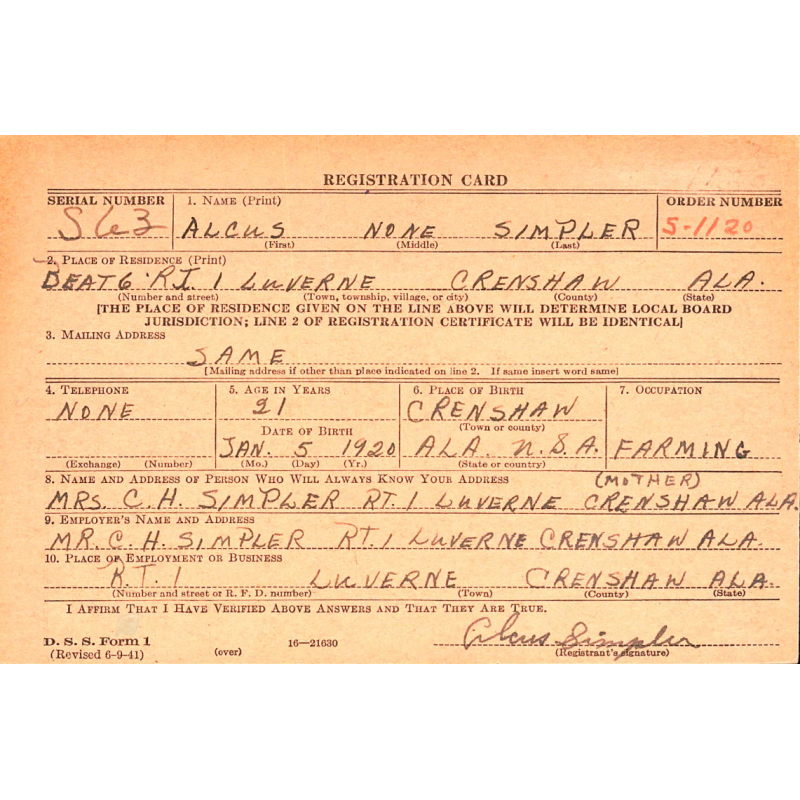 REGISTRATION CARD
SERIAL NUMBER 1. NAME (Print) ORDER NUMBER
S63 ALCUS NONE SIMPLER S-1120
(First) (Middle) (Last)
2. PLACE OF RESIDENCE (Print)
BEAT 6 RT. 1 LUVERNE CRENSHAW ALA.
(Number and street) (Town, township, village, or city) (County) (State)
[THE PLACE OF RESIDENCE GIVEN ON THE LINE ABOVE WILL DETERMINE LOCAL BOARD
JURISDICTION; LINE 2 OF REGISTRATION CERTIFICATE WILL BE IDENTICAL]
3. MAILING ADDRESS
SAME
[Mailing address if other than place indicated on line 2. If same insert word same]
4. TELEPHONE 5. AGE IN YEARS 6. PLACE OF BIRTH 7. OCCUPATION
NONE 21 CRENSHAW
(Town or county)
DATE OF BIRTH
JAN. 5 1920 ALA. U.S.A. FARMING
(Exchange) (Number) (Mo.) (Day) (Yr.) (State or country)
8. NAME AND ADDRESS OF PERSON WHO WILL ALWAYS KNOW YOUR ADDRESS (MOTHER)
MRS. C. H. SIMPLER RT. 1 LUVERNE CRENSHAW ALA.
9. EMPLOYER'S NAME AND ADDRESS
MR. C. H. SIMPLER RT. 1 LUVERNE CRENSHAW ALA.
10. PLACE OF EMPLOYMENT OR BUSINESS
RT. 1 LUVERNE CRENSHAW ALA.
(Number and street or R. F. D. number) (Town) (County) (State)
I AFFIRM THAT I HAVE VERIFIED ABOVE ANSWERS AND THAT THEY ARE TRUE.
Alcus Simpler
D. S. S. Form 1 16—21630
(Revised 6-9-41) (over) (Registrant's signature)